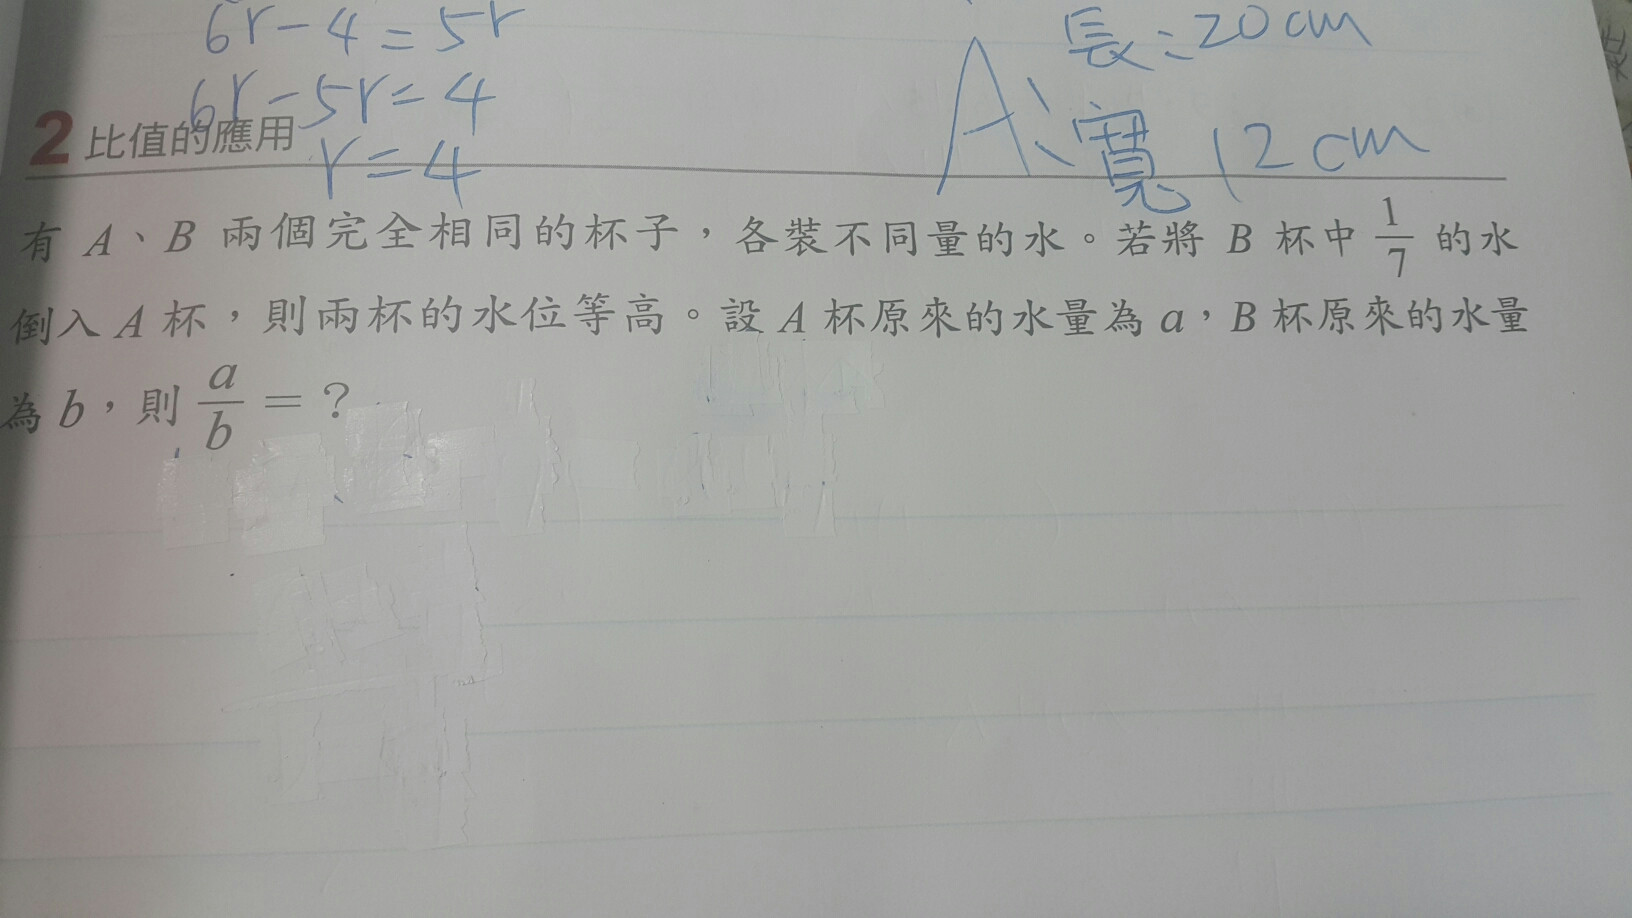 6r-4=5r
長:20cm
6r-5r=4
A:寬12cm
2 比值的應用
r=4
有 A、B 兩個完全相同的杯子,各裝不同量的水。若將 B 杯中 1/7 的水
倒入 A 杯,則兩杯的水位等高。設 A 杯原來的水量為 a,B 杯原來的水量
為 b,則 a/b = ?